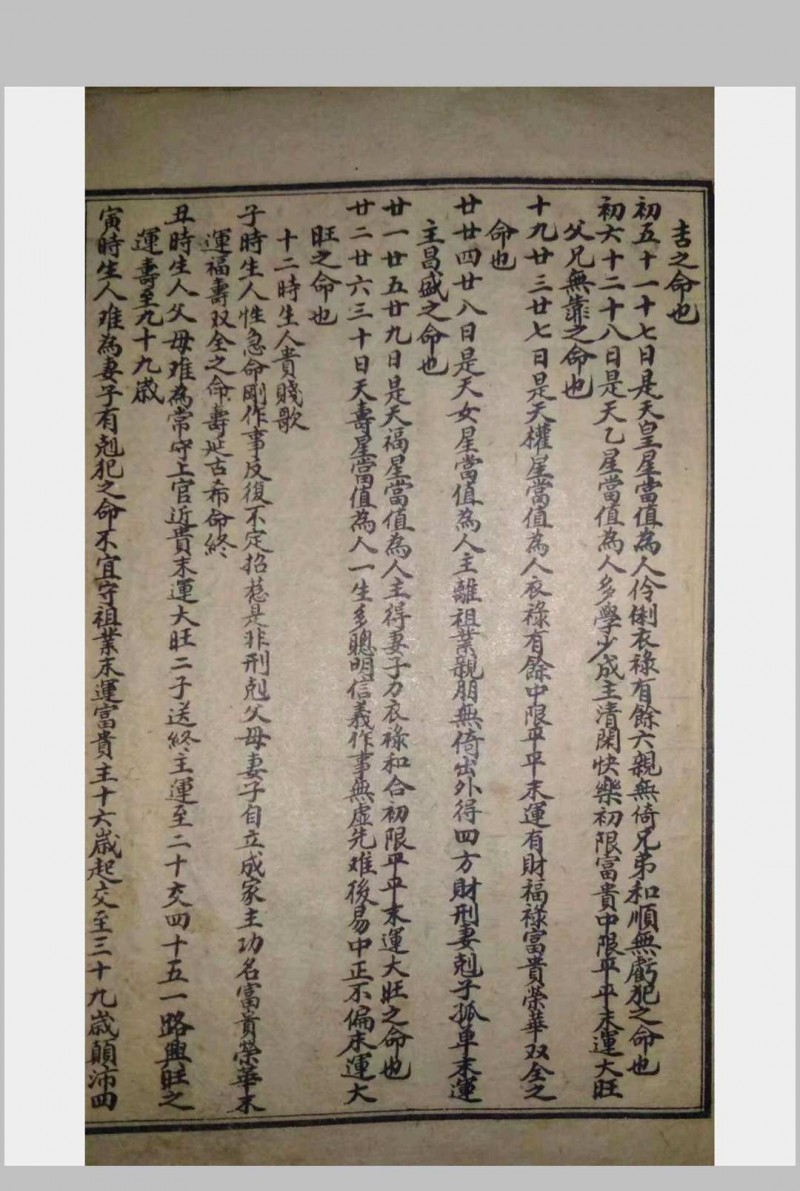 吉之命也
初五十一十七日是天皇星當值為人伶俐衣祿有餘六親無倚兄弟和順無虧犯之命也
初六十二十八日是天乙星當值為人多學少成主清閑快樂初限富貴中限平平末運大旺
父兄無靠之命也
十九廿三廿七日是天權星當值為人衣祿有餘中限平平末運有財福祿富貴榮華双全之
命也
廿廿四廿八日是天女星當值為人主離祖業親朋無倚出外得四方財刑妻剋子孤單末運
主昌盛之命也
廿一廿五廿九日是天福星當值為人主得妻子力衣祿和合初限平平末運大旺之命也
廿二廿六三十日天壽星當值為人一生多聰明信義作事無虛先难後易中正不偏末運大
旺之命也
十二時生人貴賤歌
子時生人性急命剛作事反復不定招惹是非刑剋父母妻子自立成家主功名富貴榮華末
運福壽双全之命壽延古希命終
丑時生人父母难為常守上官近貴末運大旺二子送終主運至二十交四十五一路興旺之
運壽至九十九歲
寅時生人难為妻子有剋犯之命不宜守祖業末運富貴主十六歲起交至三十九歲顛沛四